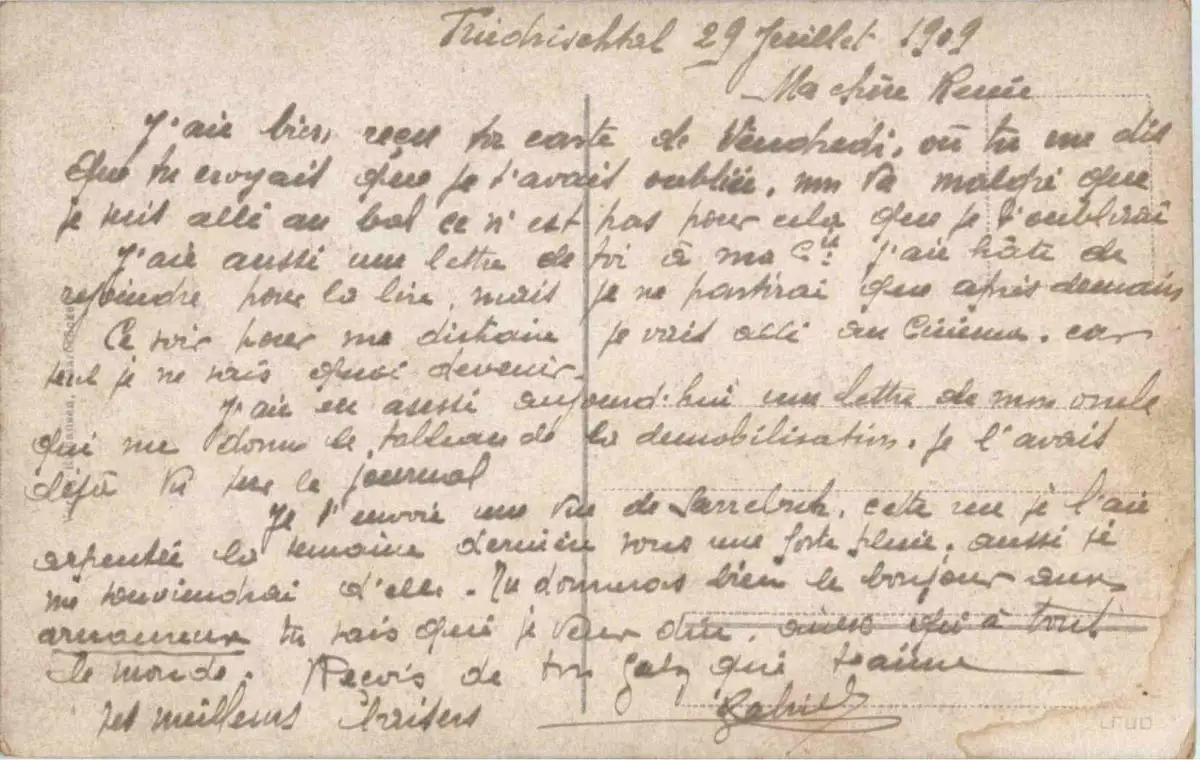 Friedrischthal 29 Juillet 1919
Ma chère Renée
J'ai bien reçu ta carte de Vendredi, où tu me dis
que tu croyait que je t'avais oubliée, malgré que
je suis allé au bal ce n'est pas pour cela que je t'oublirai
J'ai aussi une lettre de toi à ma Cie J'ai hâte de
rejoindre pour la lire, mais je ne partirai que après demain
Ce soir pour me distraire je vais allé au Cinéma. car
seul je ne sais quoi devenir.
J'ai eu aussi aujourd'hui une lettre de mon oncle
qui me donne le tableau de la demobilisation. Je l'avais
déjà vu sur le journal
Je t'envoie une vue de Sarrebruk, cette rue je l'ai
arpentée la semaine dernière sous une forte pluie. aussi je
me souviendrai d'elle. Tu donneras bien le bonjour aux
amoureux tu sais qui je veux dire, ainsi qui à tout
le monde. Reçois de ton Gaby qui t'aime
ses meilleurs baisers
Gabriel